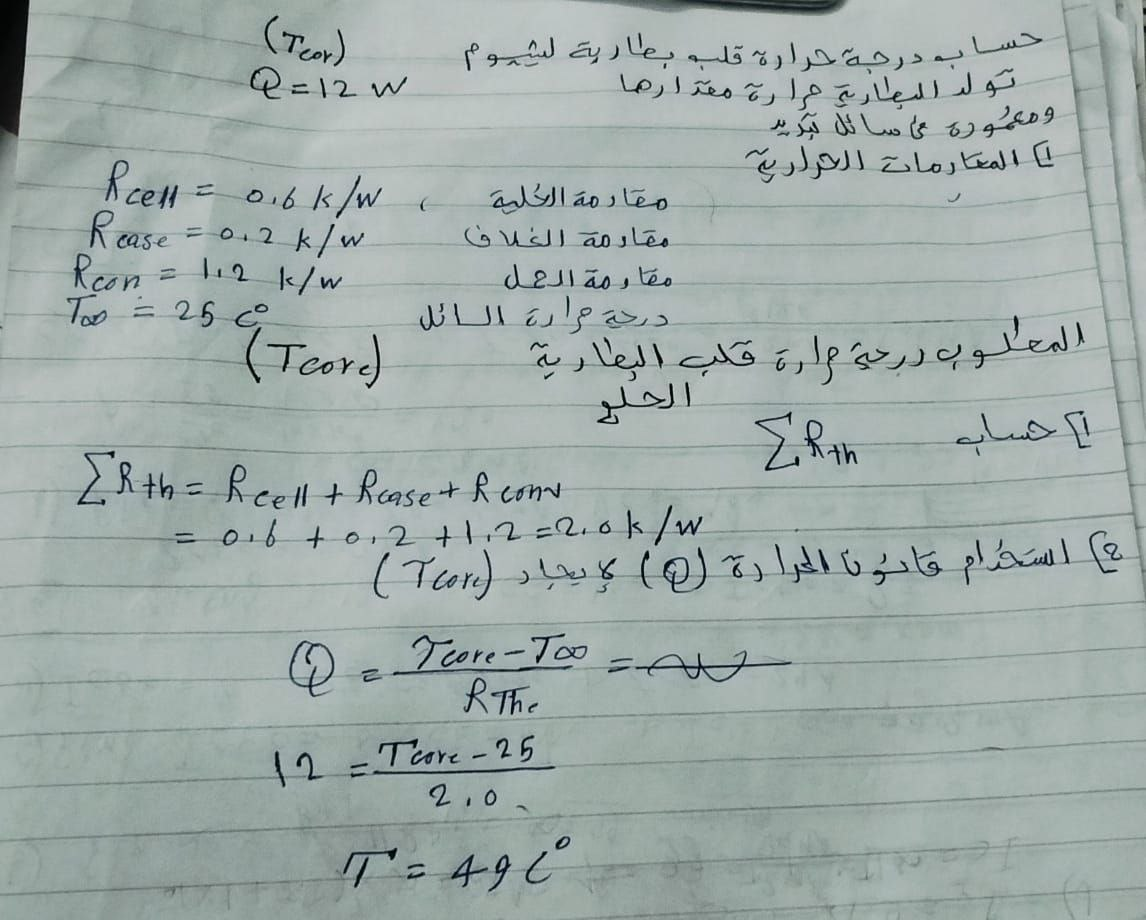 حساب درجة حرارة قلب بطارية ليثيوم (Tcor)
تولد البطارية حرارة مقدارها Q = 12 W
ومغمورة في سائل تبريد
1] المقاومات الحرارية
Rcell = 0.6 k/w ، مقاومة الخلية
Rcase = 0.2 k/w مقاومة الغلاف
Rcon = 1.2 k/w مقاومة الحمل
T∞ = 25 C° درجة حرارة السائل
المطلوب درجة حرارة قلب البطارية (Tcore)
الحل
1] حساب ΣRth
ΣRth = Rcell + Rcase + Rconv
= 0.6 + 0.2 + 1.2 = 2.0 k/w
2] استخدام قانون الحرارة (Q) لإيجاد (Tcore)
Q = Tcore - T∞ / RThe =
12 = Tcore - 25 / 2.0
T = 49 C°